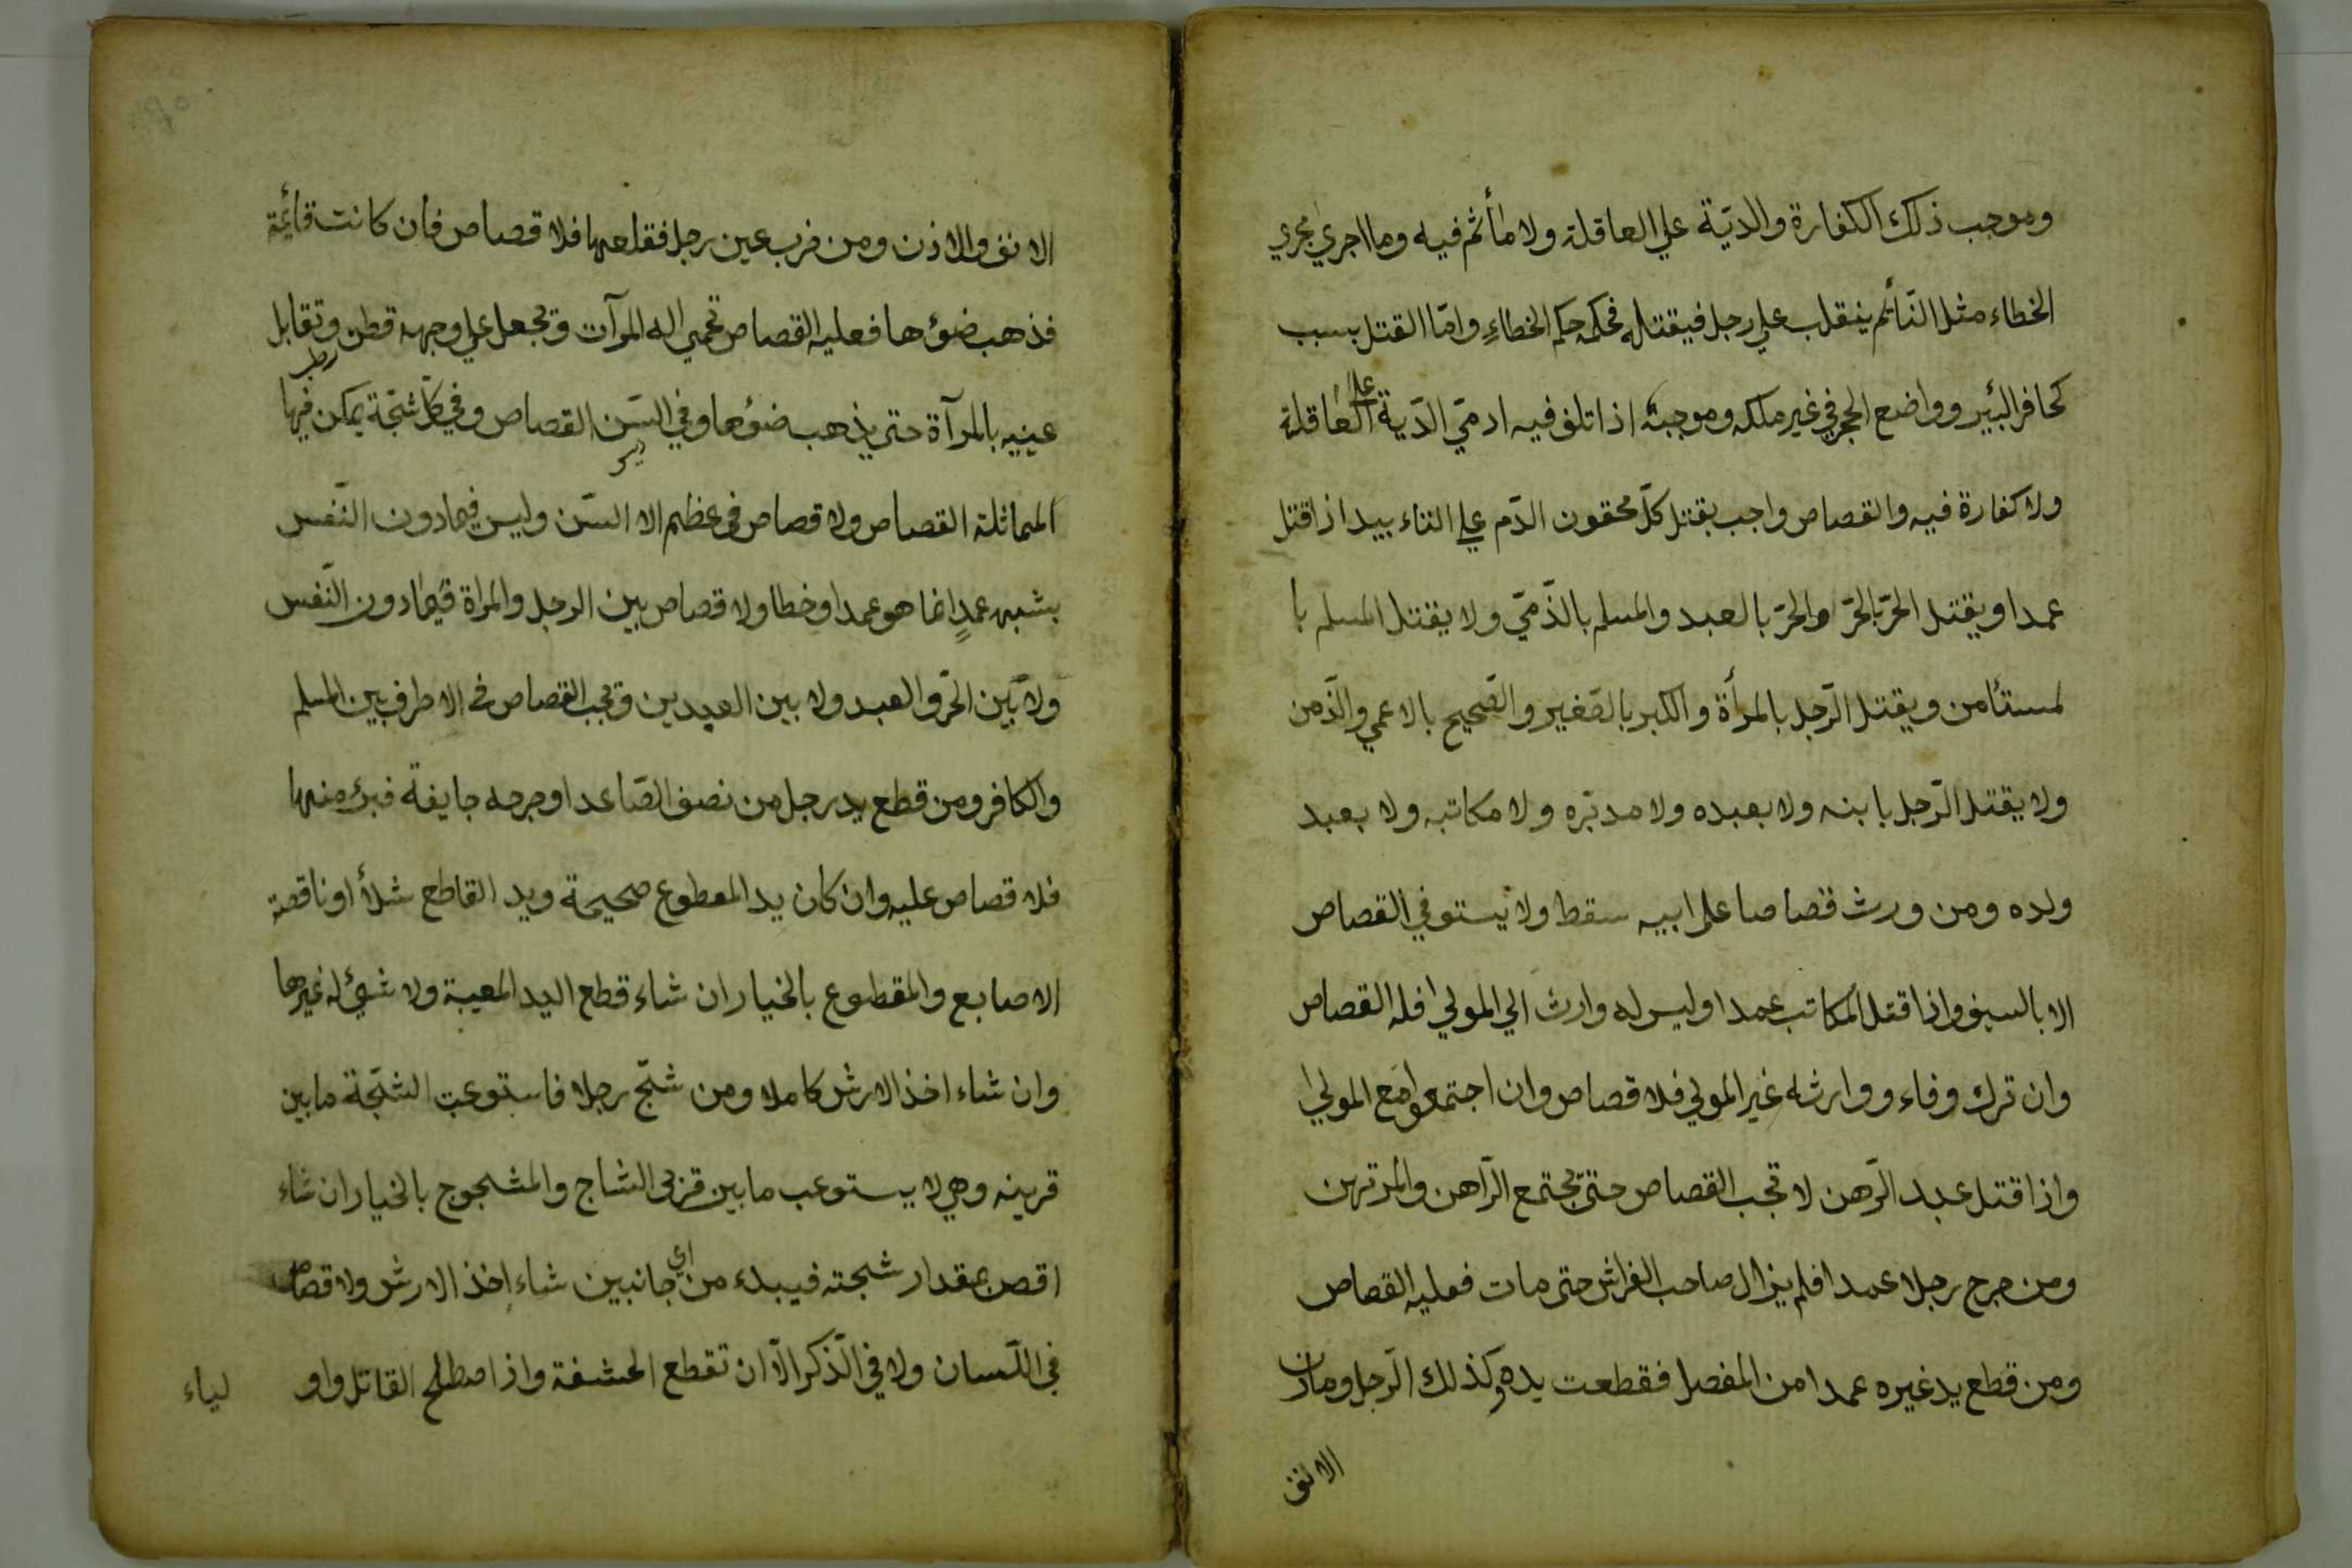 وموجب ذلك الكفارة والديّة علي العاقلة ولا مأثم فيه وما اجري مجري
الخطاء مثل النّائم ينقلب علي رجل فيقتله فحكمه حكم الخطاءِ وامّا القتل بسبب
كحافر البئير وواضع الحجر في غير ملكه وموجبه اذا تلف فيه ادميّ الدّية علي العاقلة
ولا كفارة فيه والقصاص واجب بقتل كلّ محقون الدّم علي التاء بيد اذا قتل
عمدا ويقتل الحرّ بالحرّ والحرّ بالعبد والمسلم بالذّميّ ولا يقتل المسلم با
لمستئامن ويقتل الرّجل بالمرأة والكبر بالصّغير والصّحيح بالاعمي والزّمن
ولا يقتل الرّجل بابنه ولا بعبده ولا مدبّره ولا مكاتبه ولا بعبد
ولده ومن ورث قصاصا على ابيه سقط ولا يستوفي القصاص
الا بالسيف واذا قتل المكاتب عمدا وليس له وارث الي المولي افله القصاص
وان ترك وفاء ووارثه غير المولي فلا قصاص وان اجتمعوا مع المولي
واذا قتل عبد الرّهن لا تجب القصاص حتيّ يجتمع الرّاهن والمرتهن
ومن جرح رجلا عمدا فلم يزال صاحب الفراش حتى مات فعليه القصاص
ومن قطع يد غيره عمدا من المفصل فقطعت يده وكذلك الرّجل ومارن
الانف
الانف والاذن ومن ضرب عين رجل فقلعها فلا قصاص فان كانت قائمة
فذهب ضوؤها فعليه القصاص تحمي اله المرآت ويجعل علي وجهه قطن رطب وتقابل
عينيه بالمرآة حتي يذهب ضوءها وفي السّن القصاص وفي كلّ شجّة يمكن فيها
المماثلة القصاص ولا قصاص في عظم الا السّن وليس فيما دون النّفس
بشبهه عمدٍ انما هو عمد او خطا ولا قصاص بين الرجل والمراة فيما دون النّفس
ولا بين الحرّ والعبد ولا بين العبدين ويجب القصاص في الاطرف بين المسلم
والكافر ومن قطع يد رجل من نصف الصّاعد او جرحه جايفة فبرء منها
فلا قصاص عليه وان كان يد المعطوع صحيحة ويد القاطع شلأ او ناقصة
الاصابع والمقطوع بالخيار ان شاء قطع اليد المعيبة ولا شيئ له غيرها
وان شاء اخذ الارش كاملا ومن شجّ رجلا فاستوعبت الشجّة ما بين
قرينه وهي لا يستوعب ما بين قرني الشاج والمشجوج بالخيار ان شاء
اقصّ بمقدار شجته فيبدء من اي جانبين شاء اخذ الارش ولا قصاص
في اللّسان ولا في الذّكر الّا ان تقطع الحشفة واذا اصطلح القاتل واو
لياء